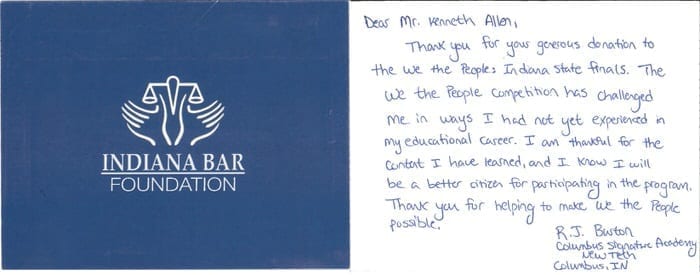 INDIANA BAR
FOUNDATION
Dear Mr. Kenneth Allen,
Thank you for your generous donation to
the We the People: Indiana State finals. The
We the People competition has challenged
me in ways I had not yet experienced in
my educational career. I am thankful for the
content I have learned, and I know I will
be a better citizen for participating in the program.
Thank you for helping to make We the People
possible.
R.J. Burton
Columbus Signature Academy
New Tech
Columbus, IN